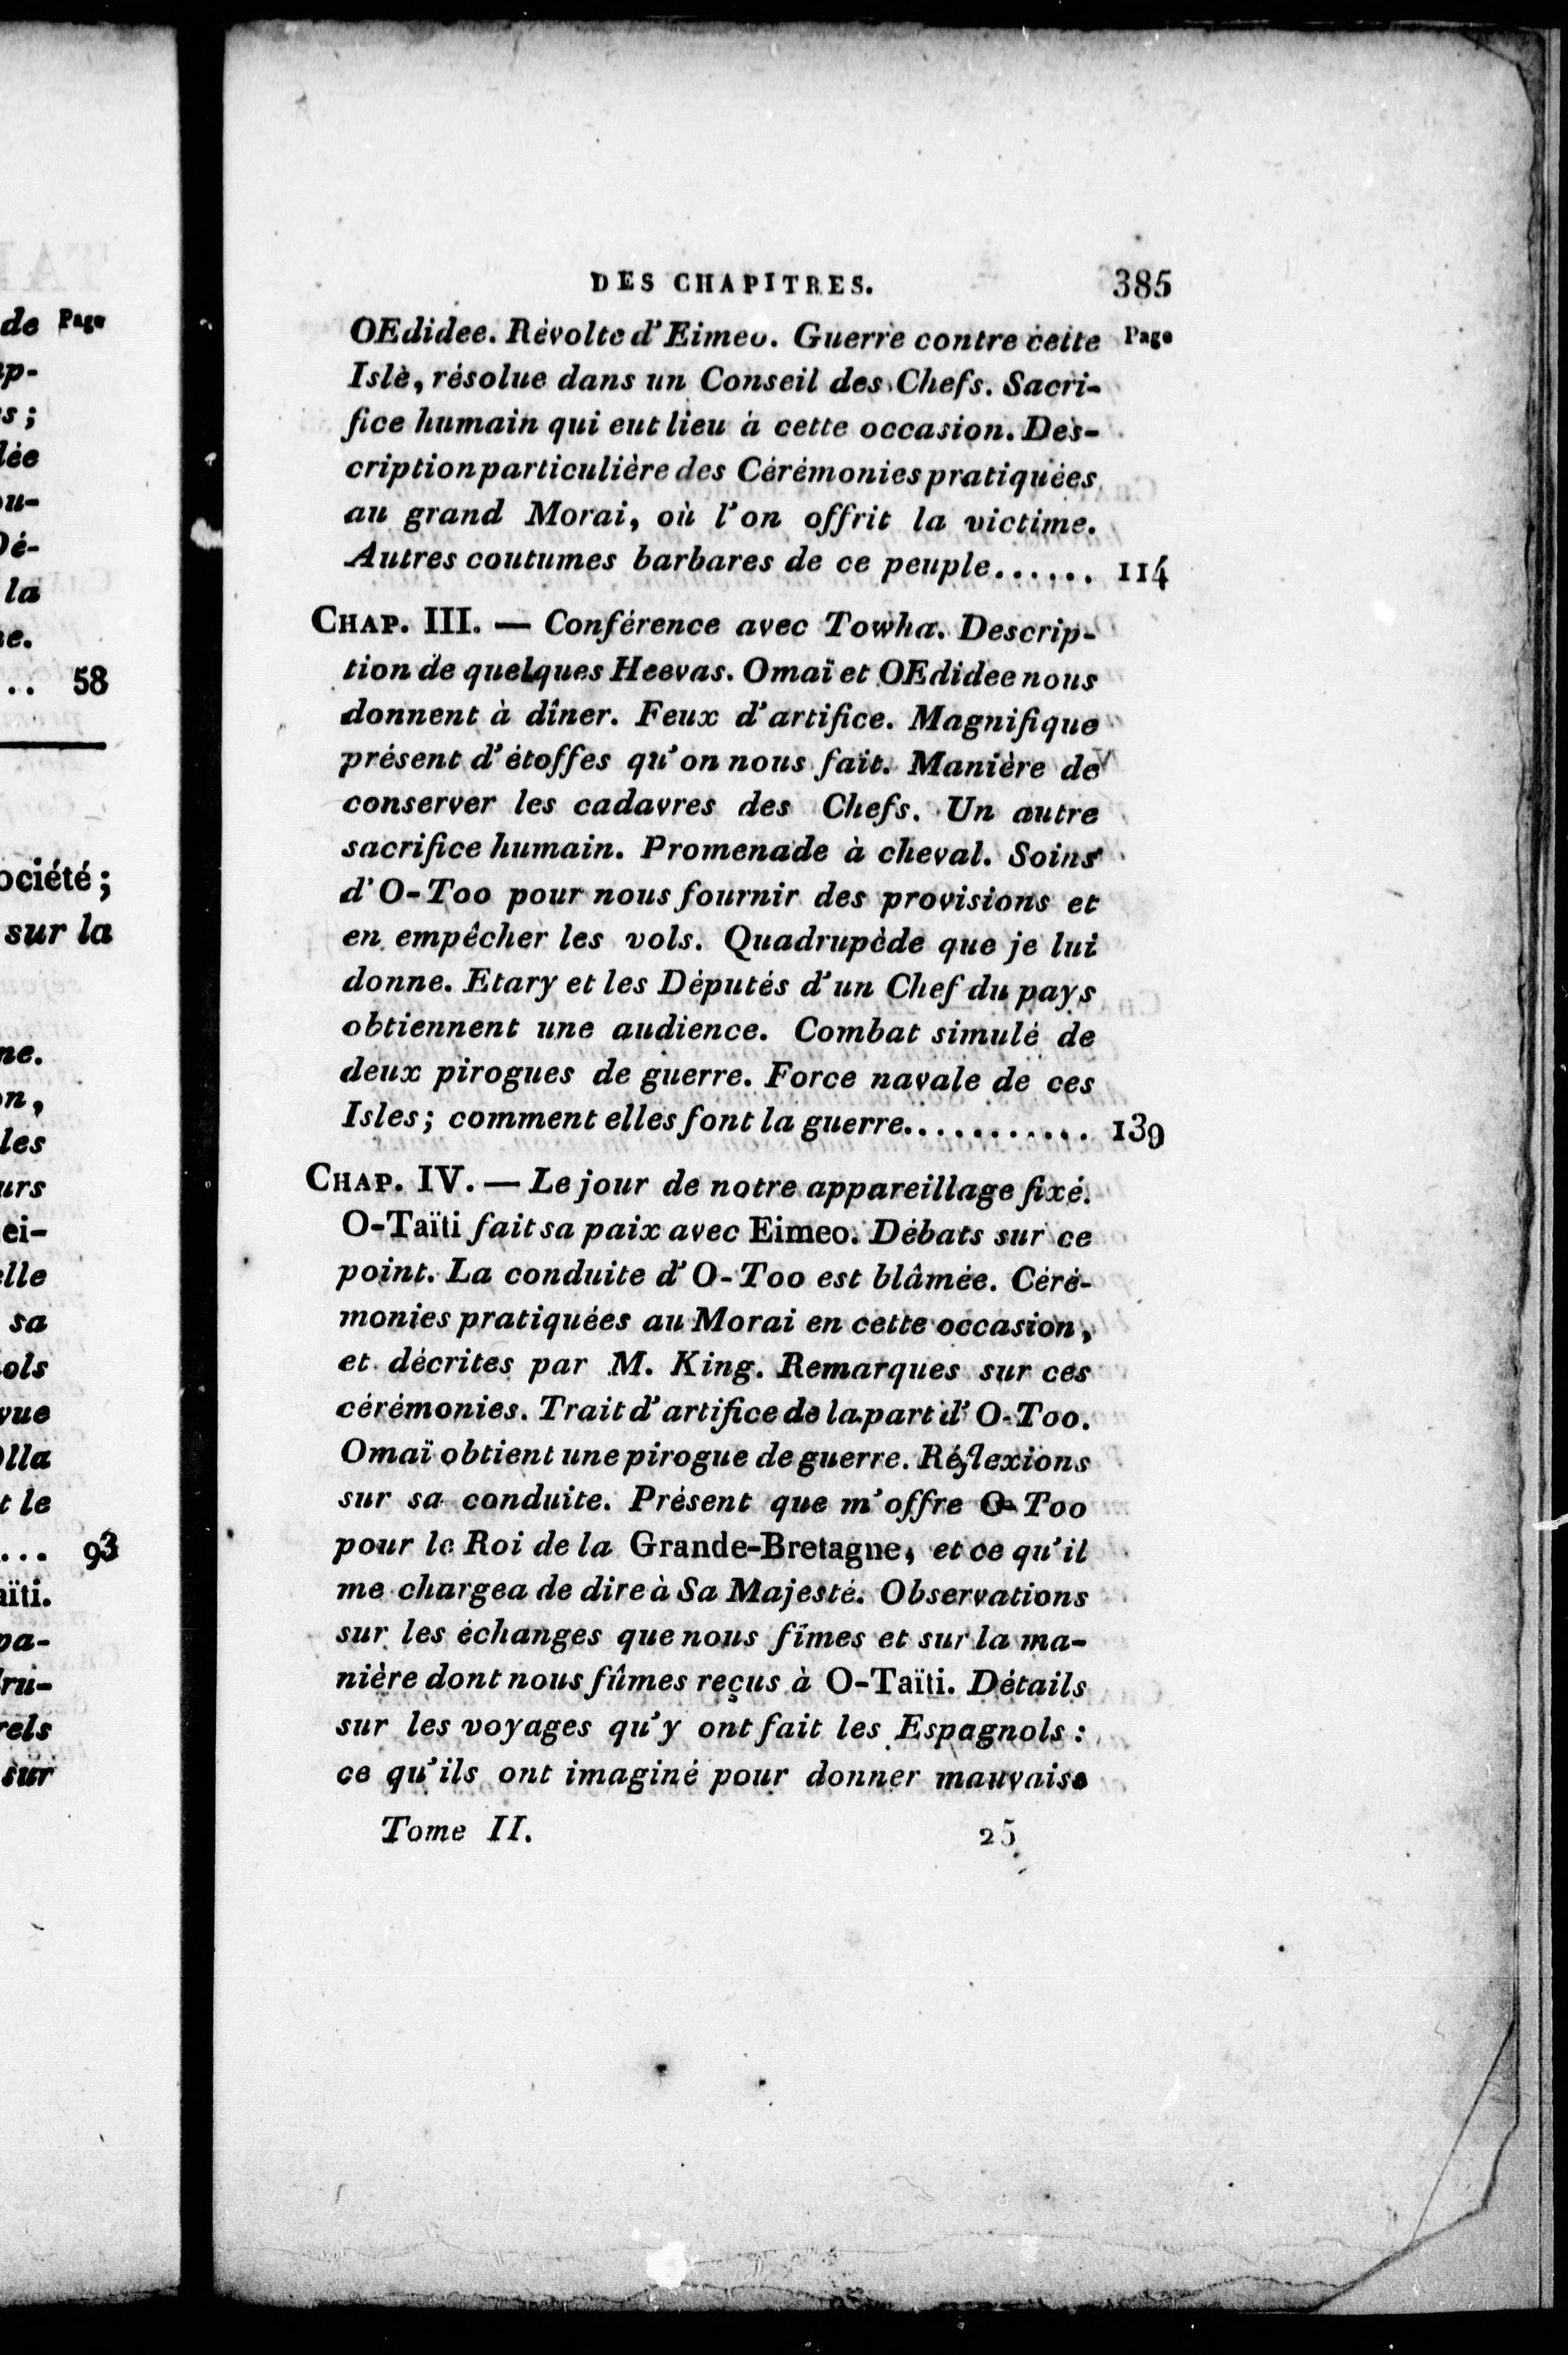 de Page
ap-
s ;
lée
ou-
Dé-
la
ne.
.. 58
ociété ;
sur la
ne.
on,
les
urs
ei-
elle
sa
ols
vue
olla
t le
... 93
aïti.
pa-
dru-
rels
sur
DES CHAPITRES. 385
OEdidee. Révolte d'Eimeo. Guerre contre cette Page
Islè, résolue dans un Conseil des Chefs. Sacri-
fice humain qui eut lieu à cette occasion. Des-
cription particulière des Cérémonies pratiquées
au grand Morai, où l'on offrit la victime.
Autres coutumes barbares de ce peuple...... 114
CHAP. III. — Conférence avec Towha. Descrip-
tion de quelques Heevas. Omaï et OEdidee nous
donnent à dîner. Feux d'artifice. Magnifique
présent d'étoffes qu'on nous fait. Manière de
conserver les cadavres des Chefs. Un autre
sacrifice humain. Promenade à cheval. Soins
d'O-Too pour nous fournir des provisions et
en empêcher les vols. Quadrupède que je lui
donne. Etary et les Députés d'un Chef du pays
obtiennent une audience. Combat simulé de
deux pirogues de guerre. Force navale de ces
Isles; comment elles font la guerre............ 139
CHAP. IV. — Le jour de notre appareillage fixé.
O-Taïti fait sa paix avec Eimeo. Débats sur ce
point. La conduite d'O-Too est blâmée. Céré-
monies pratiquées au Morai en cette occasion,
et décrites par M. King. Remarques sur ces
cérémonies. Trait d'artifice de la part d'O-Too.
Omaï obtient une pirogue de guerre. Réflexions
sur sa conduite. Présent que m'offre O-Too
pour le Roi de la Grande-Bretagne, et ce qu'il
me chargea de dire à Sa Majesté. Observations
sur les échanges que nous fîmes et sur la ma-
nière dont nous fûmes reçus à O-Taïti. Détails
sur les voyages qu'y ont fait les Espagnols :
ce qu'ils ont imaginé pour donner mauvaise
Tome II. 25